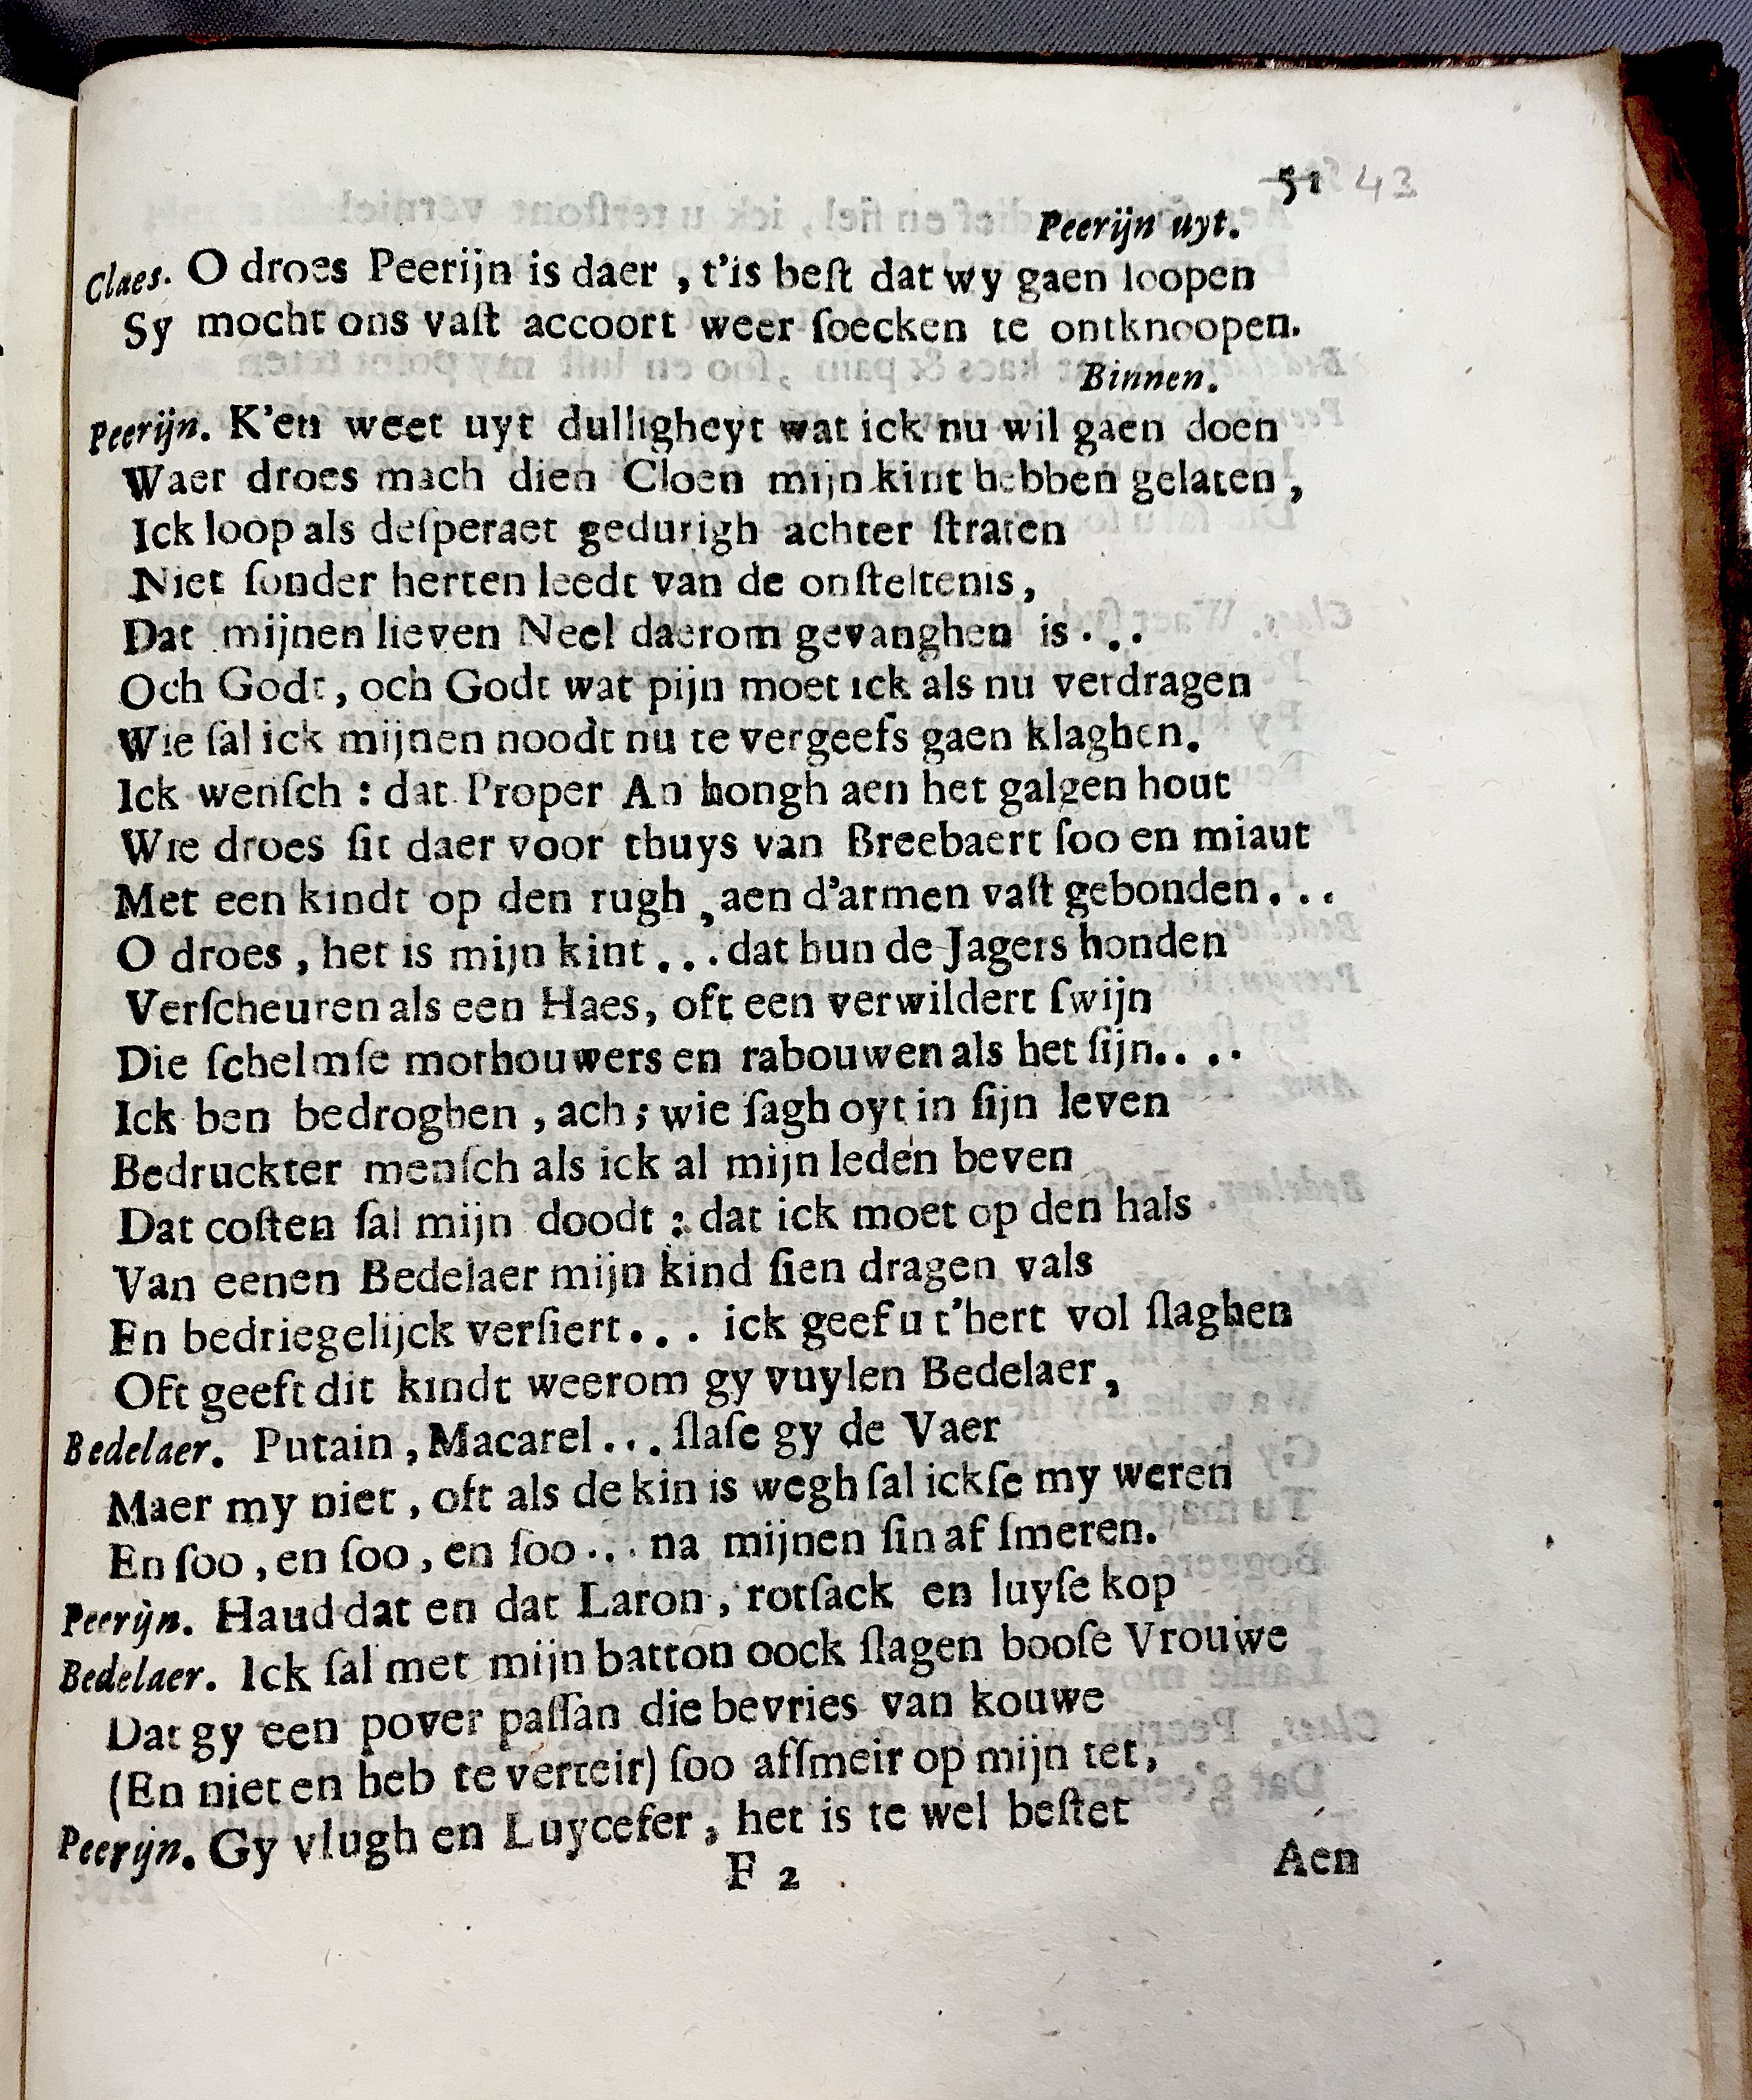 51 43
Peerijn uyt.
Claes. O droes Peerijn is daer , t'is beſt dat wy gaen loopen
Sy mocht ons vaſt accoort weer ſoecken te ontknoopen.
Binnen.
Peerijn. K'en weet uyt dulligheyt wat ick nu wil gaen doen
Waer droes mach dien Cloen mijn kint hebben gelaten ,
Ick loop als deſperaet gedurigh achter ſtraten
Niet ſonder herten leedt van de onſteltenis ,
Dat mijnen lieven Neel daerom gevanghen is . . .
Och Godt , och Godt wat pijn moet ick als nu verdragen
Wie ſal ick mijnen noodt nu te vergeefs gaen klaghen.
Ick wenſch : dat Proper An hongh aen het galgen hout
Wie droes ſit daer voor thuys van Breebaert ſoo en miaut
Met een kindt op den rugh , aen d'armen vaſt gebonden . . .
O droes , het is mijn kint . . . dat hun de Jagers honden
Verſcheuren als een Haes, oft een verwildert ſwijn
Die ſchelmſe mothouwers en rabouwen als het ſijn. . . .
Ick ben bedroghen , ach ; wie ſagh oyt in ſijn leven
Bedruckter menſch als ick al mijn leden beven
Dat coſten ſal mijn doodt : dat ick moet op den hals
Van eenen Bedelaer mijn kind ſien dragen vals
En bedriegelijck verſiert . . . ick geef u t'hert vol ſlaghen
Oft geeft dit kindt weerom gy vuylen Bedelaer ,
Bedelaer. Putain , Macarel . . . ſlaſe gy de Vaer
Maer my niet , oft als de kin is wegh ſal ickſe my weren
En ſoo , en ſoo , en ſoo . . . na mijnen ſin af ſmeren.
Peerijn. Haud dat en dat Laron , rotſack en luyſe kop
Bedelaer. Ick ſal met mijn batton oock ſlagen booſe Vrouwe
Dat gy een pover paſſan die bevries van kouwe
(En niet en heb te verteir) ſoo afſmeir op mijn tet ,
Peerijn. Gy vlugh en Luycefer , het is te wel beſtet
F 2 Aen